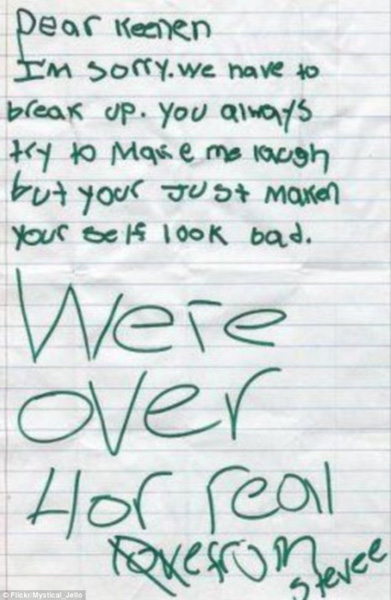 Dear Keenen
I'm sorry. we have to
break up. you always
try to Make me laugh
but your Just Maken
your self look bad.
We're
over
4or real
from
Stevee
© Flickr/Mystical_Jello